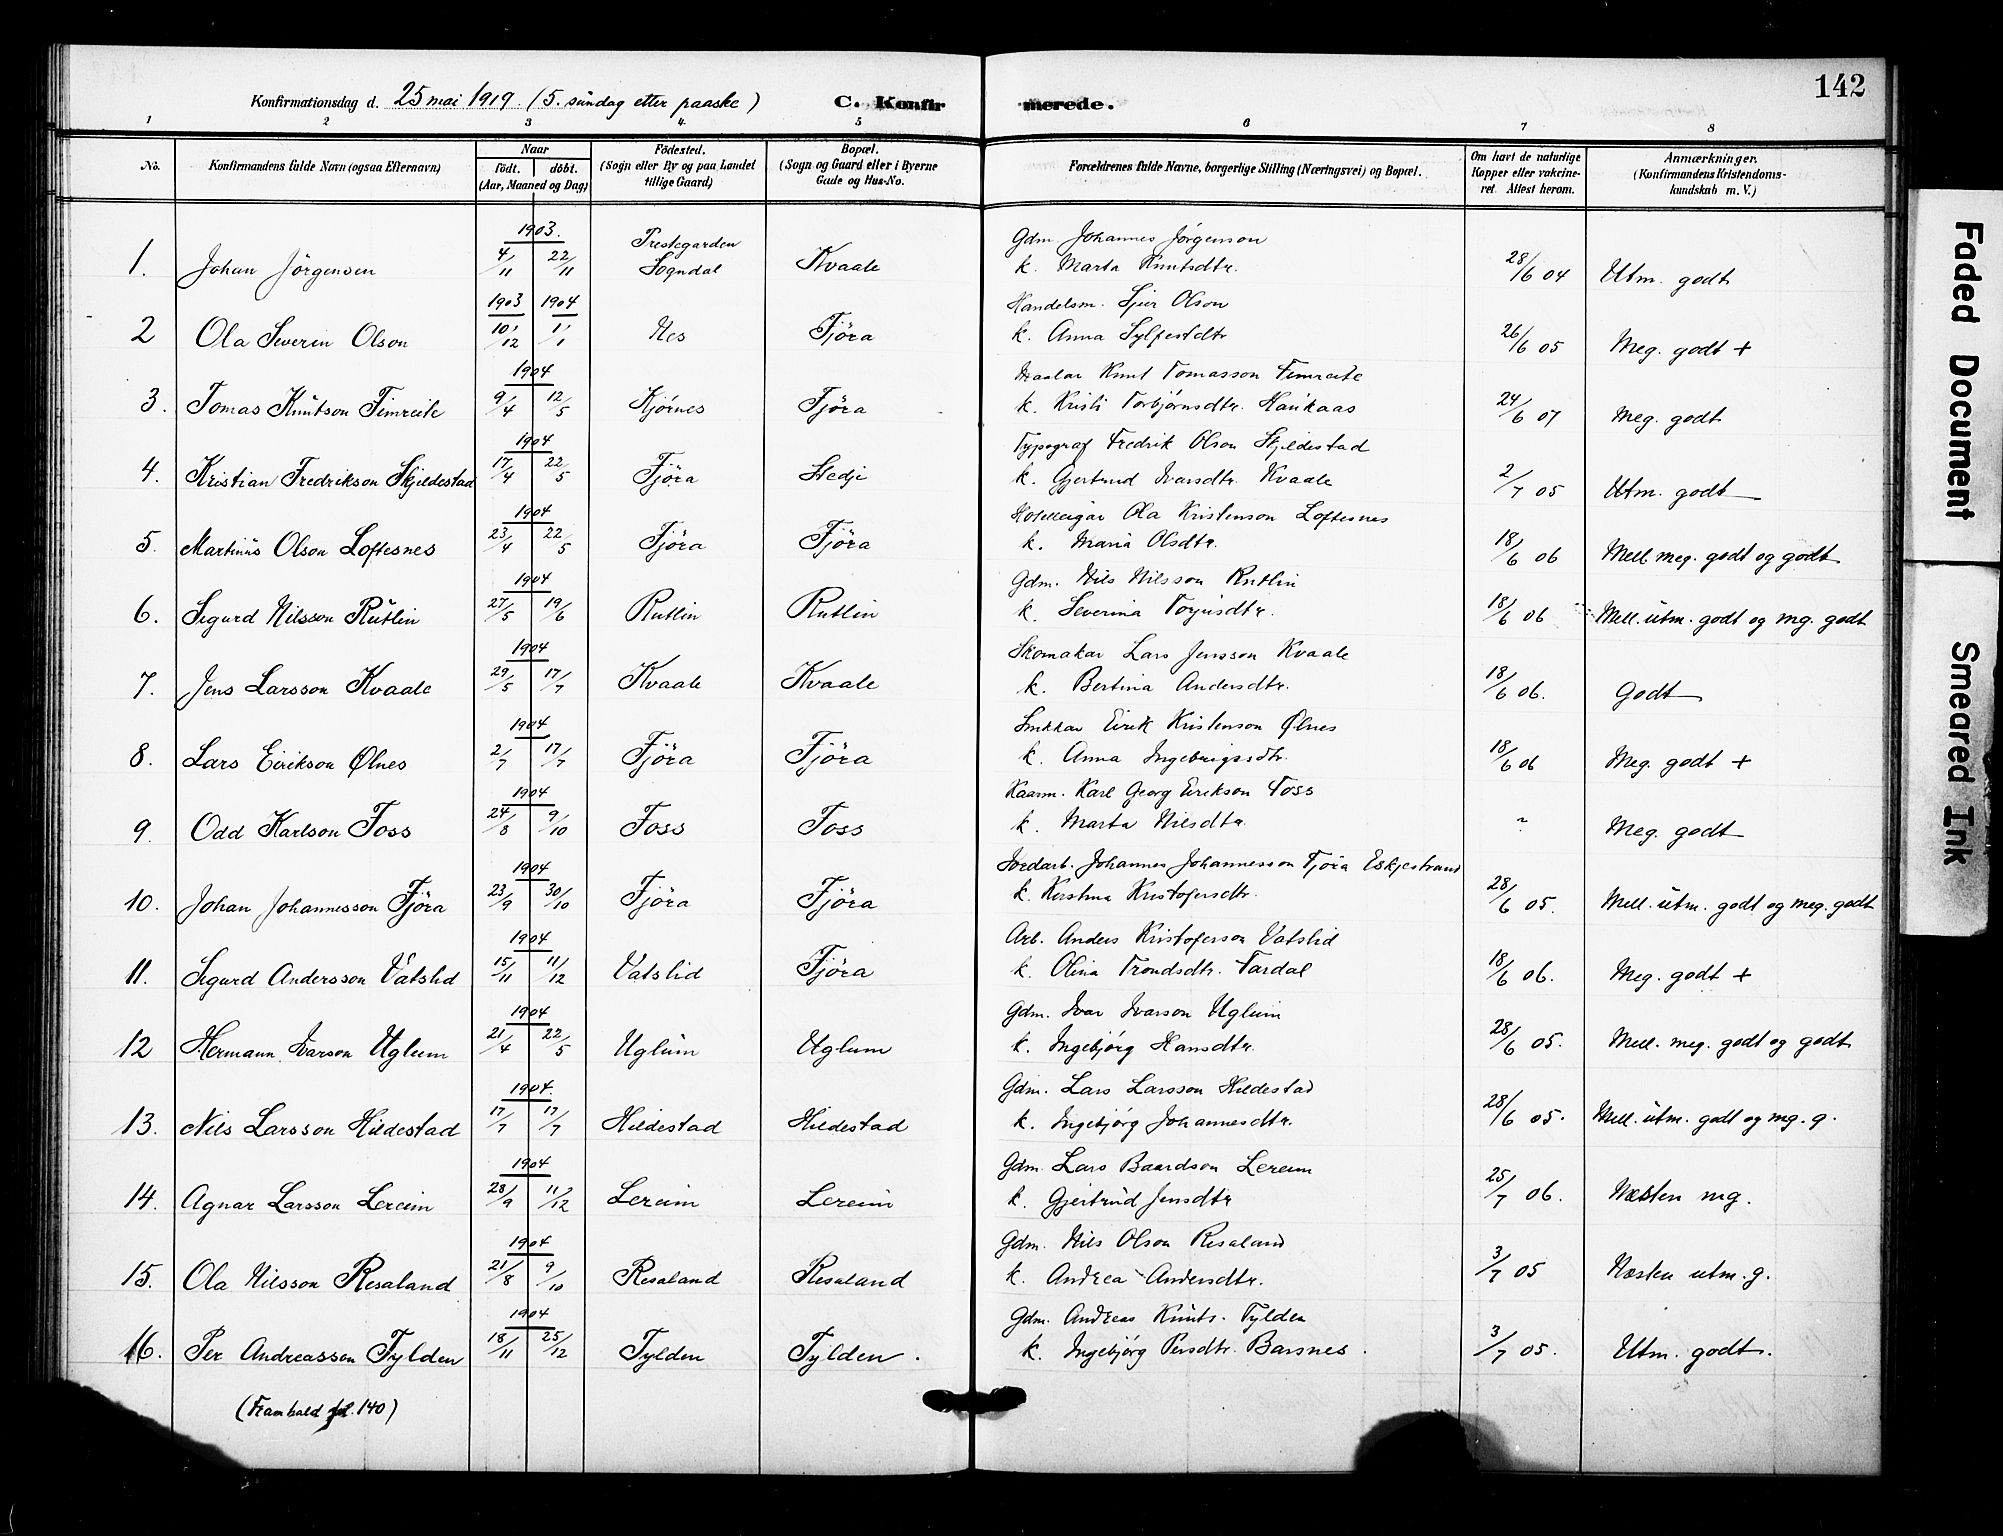 142
Konfirmationsdag d. 25 mai 1919. (5. sündag etter paaske) C. Konfirmerede.
1 2 3 4. 5 6 7 8
No. Konfirmandens fulde Navn (ogsaa Efternavn) Naar födt. döbt. (Aar, Maaned og Dag) Födested. (Sogn eller By og paa Landet tillige Gaard) Bopæl. (Sogn og Gaard eller i Byerne Gade og Hus-No. Forældrenes fulde Navne, borgerlige Stilling (Næringsvei) og Bopæl. Om havt de naturlige Kopper eller vakcineret. Attest herom. Anmærkninger. (Konfirmandens Kristendomskundskab m. V.)
1903. Prestegarden Gdm Johannes Jørgenson
1. Johan Jörgensen 4/11 22/11 Sogndal Kvaale k. Marta Knutsdtr. 28/6 04 Utm. godt
1903 1904 Handelsm. Sjur Olson
2 Ola Severin Olson 10/12 1/1 Nes Fjöra k. Anna Sylfestdtr 26/6 05 Meg. godt +
1904 Maalar Knut Tomasson Fimreite
3. Tomas Knütson Fimreite 9/4 12/5 Kjörnes Fjöra k. Kristi Torbjørnsdtr. Haukaas 24/6 07 Meg. godt
1904 Typograf Fredrik Olson Skjeldestad
4. Kristian Fredrikson Skjeldestad 17/4 22/5 Fjöra Stedje k. Gjertrud Ivarsdtr. Kvaale 2/7 05 Utm. godt
1904 Hotelleigar Ola Kristenson Loftesnes
5. Martinüs Olson Loftesnes 23/4 22/5 Fjöra Fjöra k. Maria Olsdtr. 18/6 06 Mell. meg. godt og godt
1904 Gdm. Nils Nilsson Rutlin
6. Sigurd Nilsson Rütlin 27/5 19/6 Rutlin Rutlin k. Severina Torjusdtr. 18/6 06 Mell. ütm. godt og mg. godt
1904 Skomakar Lars Jensson Kvaale
7. Jens Larsson Kvaale 29/5 17/7 Kvaale Kvaale k. Bertina Andersdtr. 18/6 06. Godt
1904 Snikkar Eirik Kristenson Ølnes
8. Lars Eirikson Ølnes 2/7 17/7 Fjöra Fjöra k. Anna Ingebrigsdtr. 18/6 06 Meg. godt +
1904 Kaarm. Karl Georg Eirikson Foss
9. Odd Karlson Foss 24/8 9/10 Foss Foss k. Marta Nilsdtr. ? Meg. godt
1904 Jordarb. Johannes Johannesson Fjöra Eskjestrand
10. Johan Johannesson Fjöra 23/9 30/10 Fjöra Fjöra k. Kristina Kristofersdtr. 28/6 05. Mell. ütm. godt og meg. godt
1904 Arb. Anders Kristoferson Vatslid
11. Sigurd Andersson Vatslid 15/11 11/12 Vatslid Fjöra k. Olina Trondsdtr. Tardal 18/6 06. Meg. godt +
1904 Gdm. Ivar Ivarson Uglum
12 Hermann Ivarson Uglum 21/4 22/5 Uglüm Uglum k. Ingebjörg Hansdtr. 28/6 05. Mell. meg. godt og godt
1904. Gdm. Lars Larsson Hildestad
13. Nils Larsson Hildestad 17/7 17/7 Hildestad Hildestad k. Ingebjörg Johannesdtr. 28/6 05. Mell. ütm. godt og mg. g.
1904 Gdm. Lars Baardson Lereim
14. Agnar Larsson Lereim 28/9 11/12 Lereim Lereim k. Gjertrüd Jensdtr 25/7 06. Næsten mg.
1904 Gdm. Nils Olson Resaland
15. Ola Nilsson Resaland 21/8 9/10 Resaland Resaland k. Andrea Andersdtr. 3/7 05 Næsten utm. g.
1904 Gdm. Andreas Knüts. Tylden
16. Per Andreasson Tylden 18/11 25/12 Tylden Tylden. k. Ingebjörg Persdtr. Barsnes. 3/7 05. Utm. godt.
(Framhald fol. 140)
Faded Document
Smeared Ink